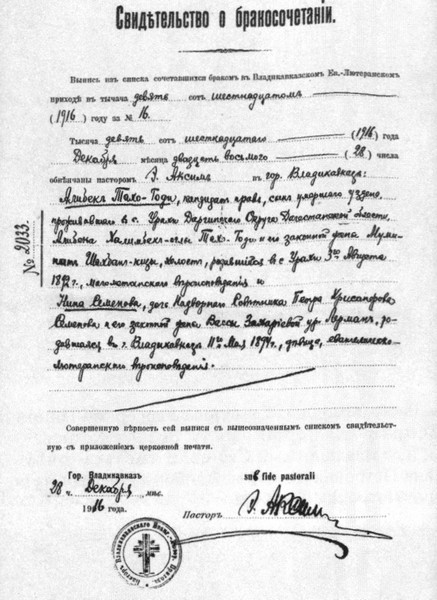 Свидѣтельство о бракосочетаніи.
Выпись изъ списка сочетавшихся бракомъ въ Владикавказскомъ Ев.-Лютеранскомъ
приходѣ въ тысяча девять сотъ шестнадцатомъ
(1916) году за № 16.
Тысяча девять сотъ шестнадцатаго (1916) года
Декабря мѣсяца двадцать восьмого (28) числа
обвѣнчаны пасторомъ Э. Аксимъ въ гор. Владикавказѣ:
Алибекъ Тахо-Годи, кандидатъ правъ, сынъ умершаго узденя,
проживавшаго въ с. Урахи Даргинскаго Округа Дагестанской области,
Тахо-Годи и его законной жены
холостъ, родившійся въ с. Урахи 3го Августа
1892 г., магометанскаго вѣроисповѣданія и
Нина Семенова, дочь Надворнаго Совѣтника Петра Хрисанфова
Семенова и его законной жены Васс Захаріевой ур. Германъ, ро-
дившаяся въ г. Владикавказѣ Мая 1894 г., дѣвица, евангелическо-
лютеранскаго вѣроисповѣданія.
№ 2033.
Совершенную вѣрность сей выписи съ вышеозначеннымъ спискомъ свидѣтельст-
вую съ приложеніемъ церковной печати.
Гор. Владикавказъ sub fide pastorali
28 ч. Декабря мѣс.
1916 года. Пасторъ Э. Аксимъ